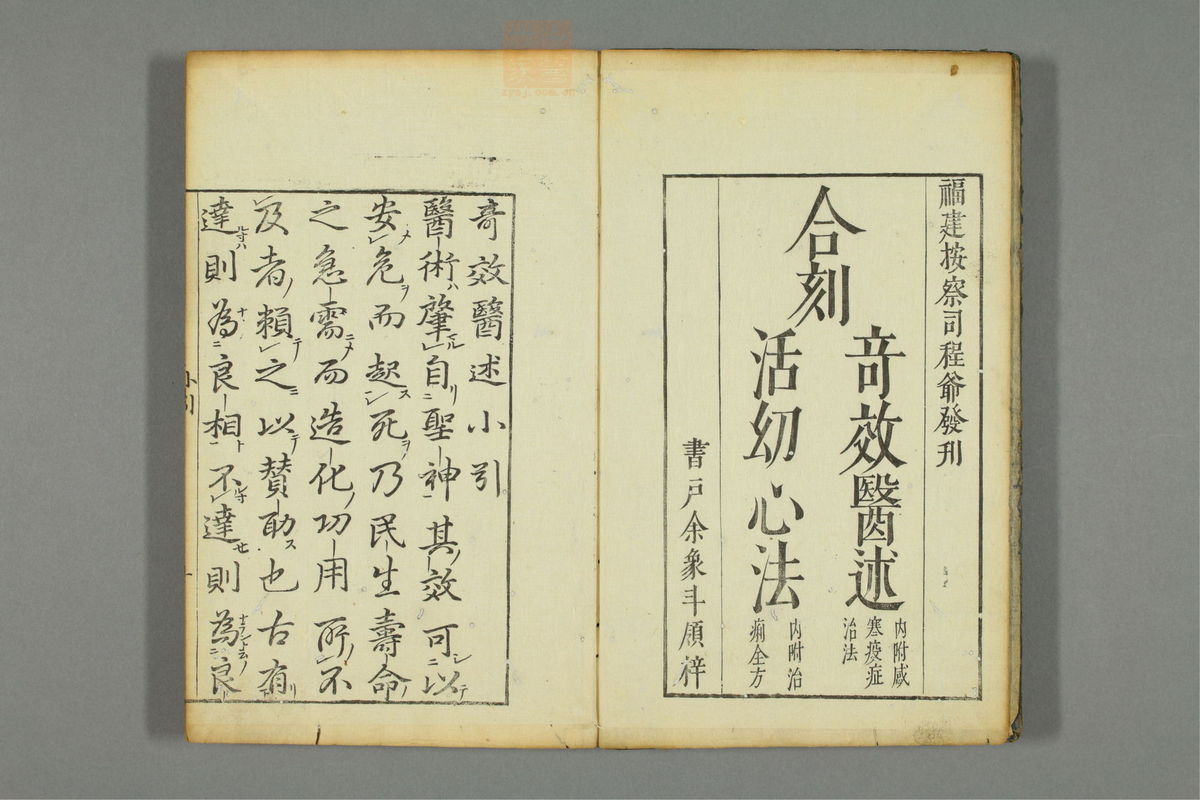 福建按察司程爺發刊
合刻
竒效醫述
内附感
寒疫症
治法
活幼心法
内附治
痢全方
書戸余象斗領梓
竒效醫述小引
醫術肇自聖神其效可以
安危而起死乃民生壽命
之急需而造化功用所不
及者頼之以賛助也古有
達則為良相不達則為良
小引
zysj.com.cn